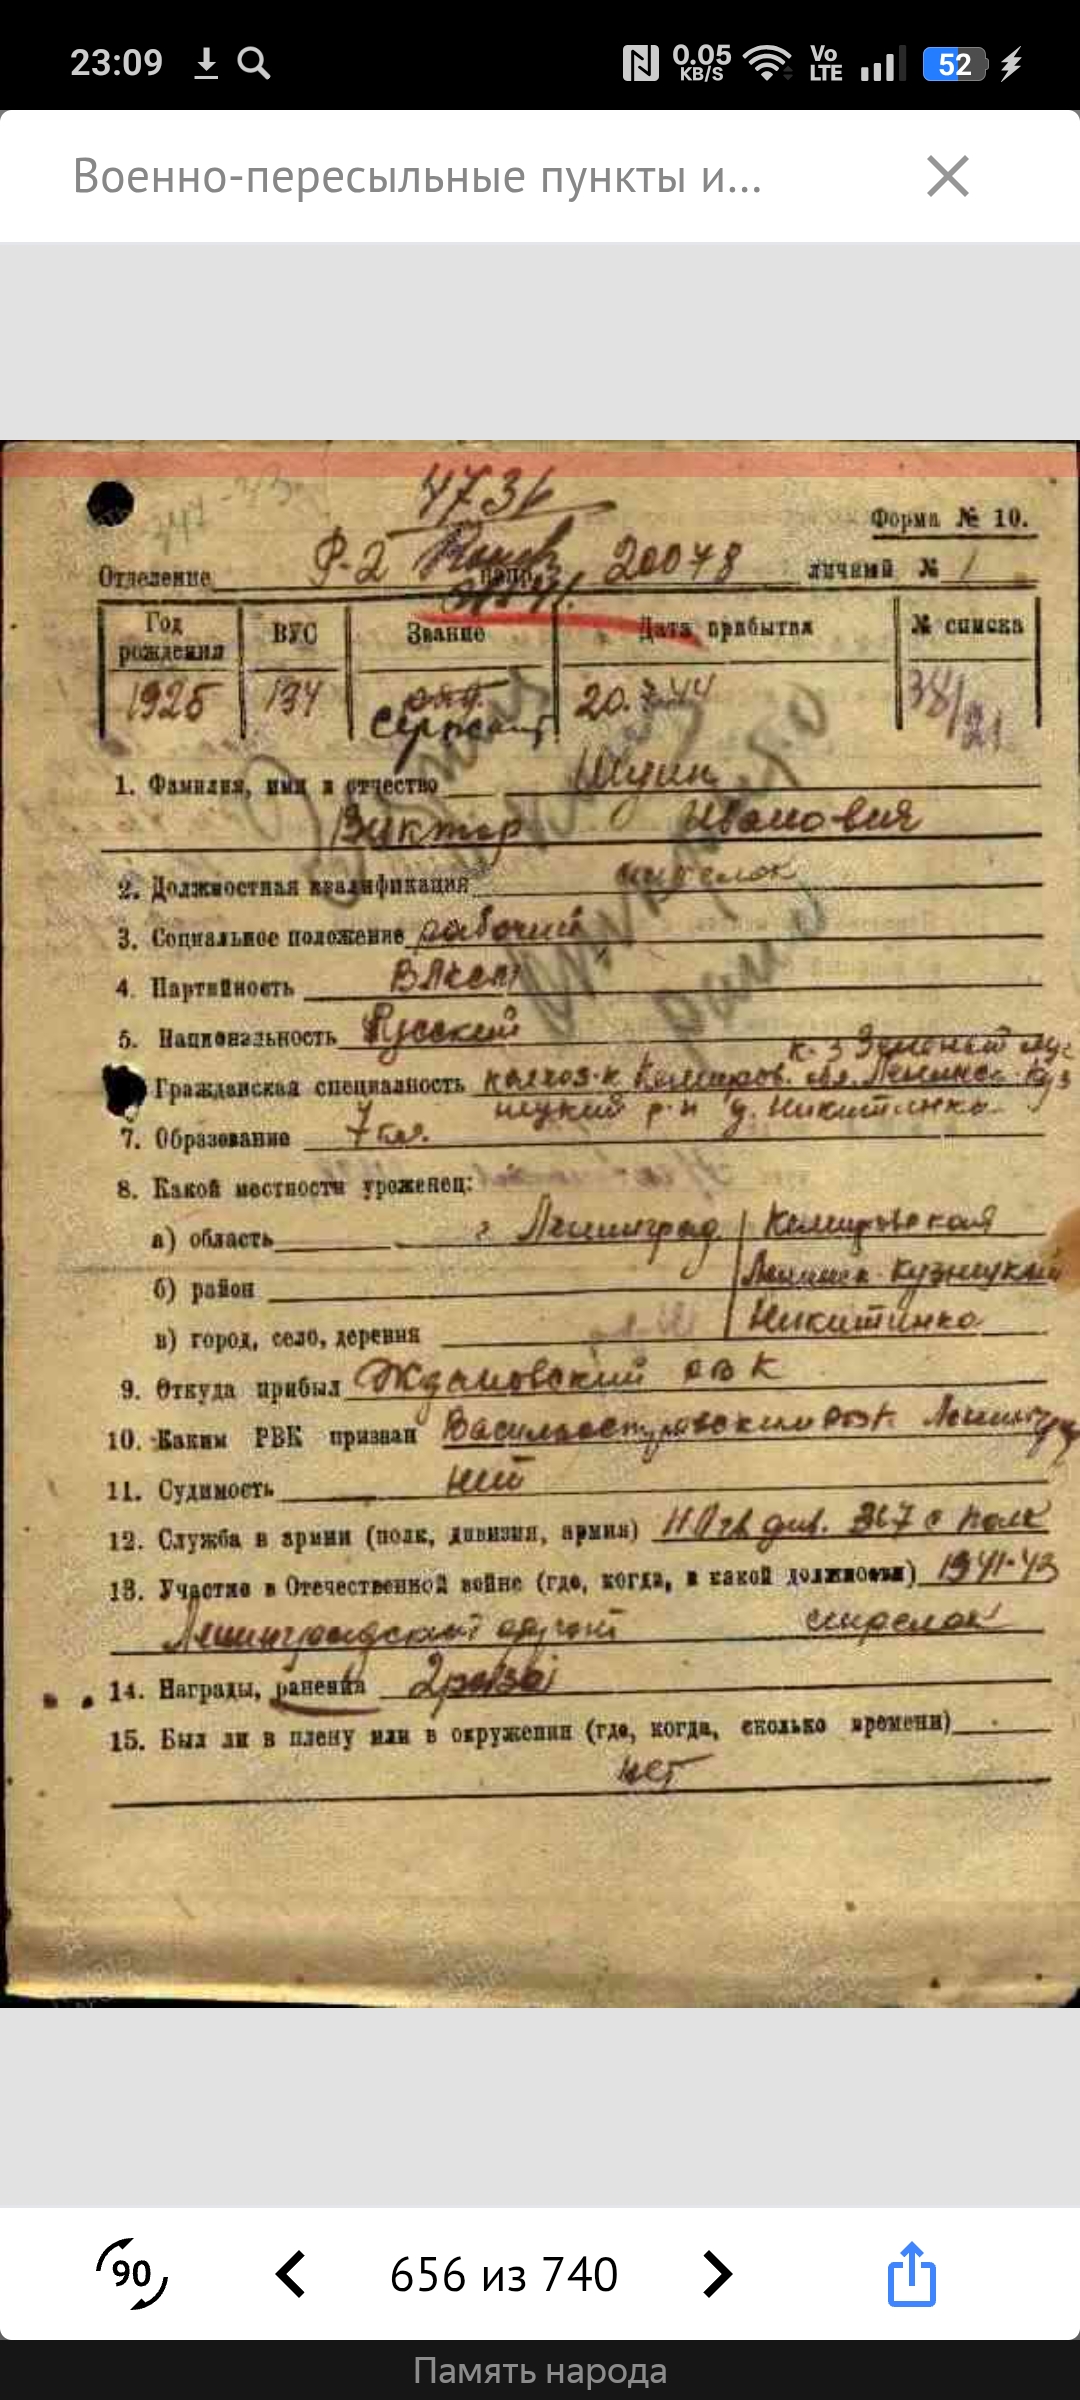 23:09
0.05 KB/S Vo LTE 52
Военно-пересыльные пункты и...
4731
Форма № 10.
Отделение Р-2 20078 личный № 1
Год рождения ВУС Звание Дата прибытия № списка
1925 134 20. 7.44 38/21
Сержант
1. Фамилия, имя и отчество Шудин
Виктор Иванович
2. Должностная квалификация стрелок
3. Социальное положение рабочий
4. Партийность ВЛКСМ
5. Национальность Русский
к-з Зеленый луг
Гражданская специалность колхоз-к Кемеров. обл. Ленинск-Куз
нецкий р-н д. Никитинка
7. Образование 7 кл.
8. Какой местности уроженец:
а) область г Ленинград Кемеровская
б) район Ленинск-Кузнецкий
в) город, село, деревня Никитинка
9. Откуда прибыл Ждановский РВК
10. Каким РВК призван Василеостровским РВК Ленингр
11. Судимость нет
12. Служба в армии (полк, дивизия, армия) див. 367 с полк
13. Участие в Отечественной войне (где, когда, в какой должности) 1941-43
Ленинградский фронт стрелок
14. Награды, ранения 2 раза
15. Был ли в плену или в окружении (где, когда, сколько времени)
нет
90 656 из 740
Память народа